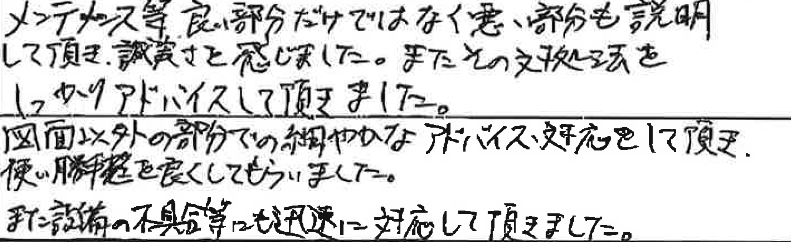 メンテナンス等 良い部分だけではなく悪い部分も説明
して頂き、誠実さを感じました。またその対処法を
しっかりアドバイスして頂きました。
図面以外の部分での細やかなアドバイス、対応をして頂き、
使い勝手を良くしてもらいました。
また設備の不具合等にも迅速に対応して頂きました。